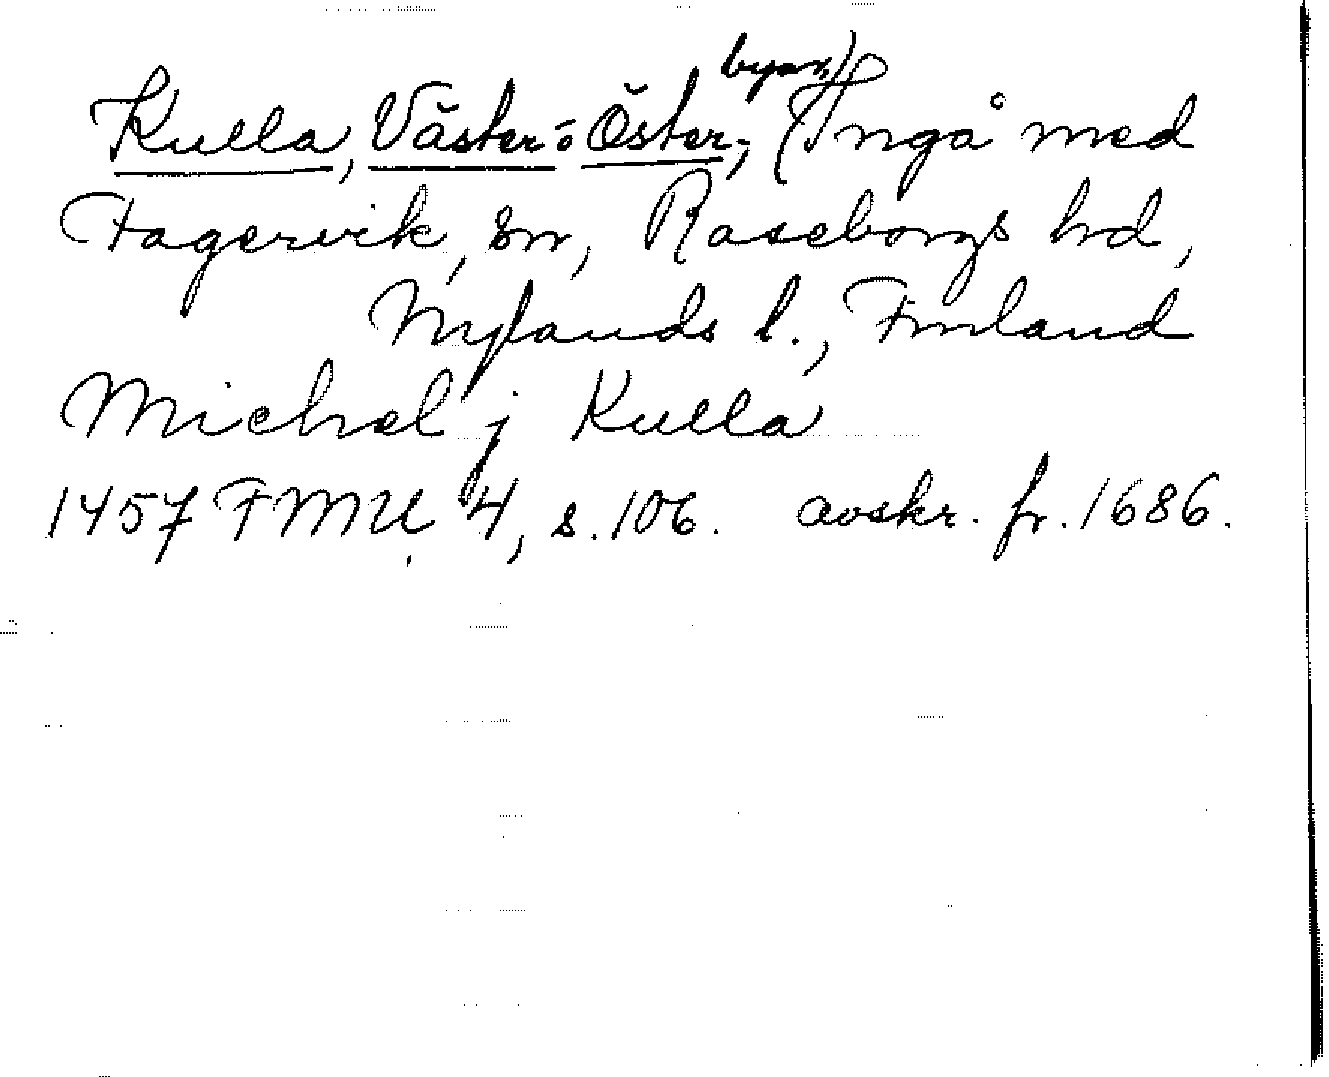 Kulla, Väster- o Öster-, byar, Ingå med
Fagervik, sn, Raseborgs hd,
Nylands l., Finland
Michel j Kulla
1457 FMU 4, s. 106. avskr. fr. 1686.